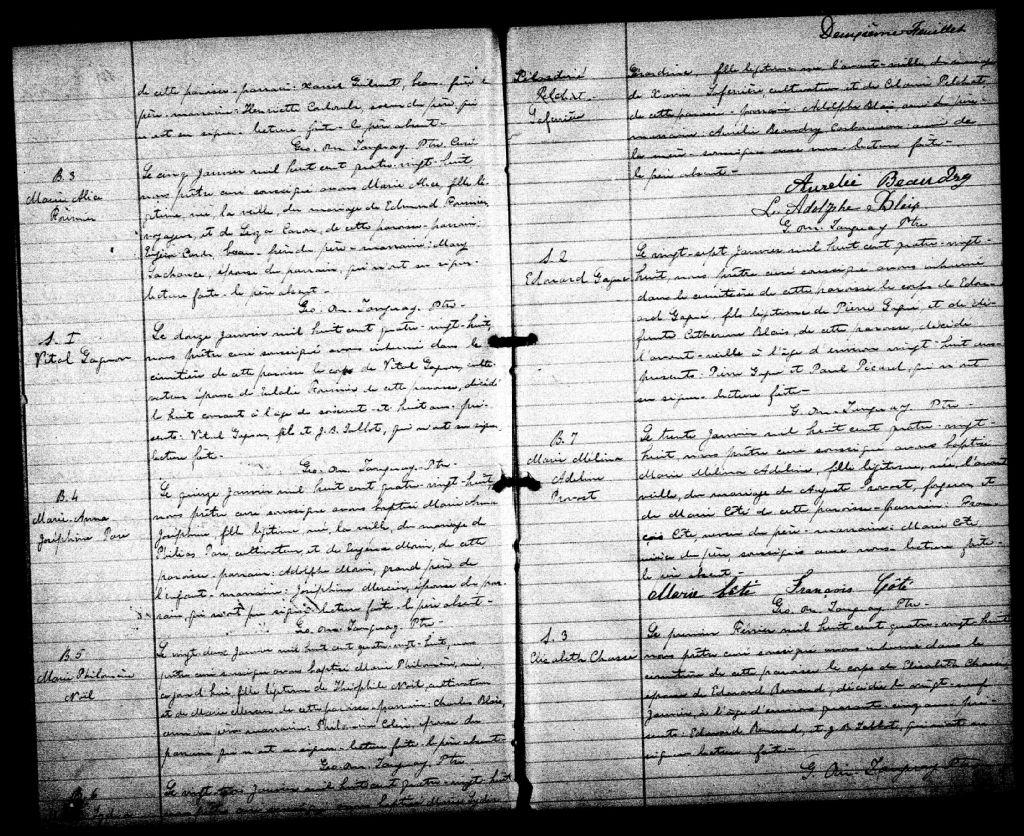 de cette paroisse - parrain: Xavier Gilbert, beau-frère
père - marraine: Henriette soeur du père, qui
n'ont su signer. lecture faite - le père absent -
Geo. On. Tanguay. Ptre. Curé
B. 3
Marie Alice
Fournier
Le cinq janvier mil huit cent quatre-vingt-huit
nous prêtre curé soussigné avons Marie Alice, fille lé-
gitime, née la veille, du mariage de Edmond Fournier,
voyageur, et de Caron, de cette paroisse - parrain:
beau-frère du père - marraine: Mary
Lachance, épouse du parrain, qui n'ont su signer.
lecture faite - le père absent -
Geo. On. Tanguay. Ptre -
S. I
Vital Gagnon
Le douze janvier mil huit cent quatre-vingt-huit,
nous prêtre curé soussigné avons inhumé dans le
cimetière de cette paroisse le corps de Vital Gagnon, culti-
vateur, époux de Eulalie Fournier de cette paroisse, décédé
le huit courant à l'age de soixante-et-huit ans. pré-
sents: Vital Gagnon, fils et J.B. Talbot, qui n'ont su signer.
lecture faite -
Geo. On. Tanguay. Ptre -
B. 4
Marie. Anna
Joséphine Paré
Le quinze janvier mil huit cent quatre-vingt-huit,
nous prêtre curé soussigné avons baptisé Marie Anna
Joséphine, fille légitime née la veille, du mariage de
Philias Paré, cultivateur, et de Eugénie Morin, de cette
paroisse - parrain: Adolphe Morin, grand père de
l'enfant - marraine: Joséphine Mercier, épouse du par-
rain, qui n'ont pu signer. lecture faite le père absent -
Geo. On. Tanguay. Ptre -
B. 5
Marie Philomène
Noël
Le vingt deux janvier mil huit cent quatre-vingt-huit, nous
prêtre curé soussigné avons baptisé Marie Philomène, née,
aujourd'hui, fille légitime de Théophile Noël, cultivateur
et de Marie Mercier de cette paroisse - parrain: Charles Blais,
du père - marraine: Philomène épouse du
parrain qui n'ont su signer - lecture faite - le père absent -
Geo. On. Tanguay. Ptre
B. 6
Lydia
Le vingt trois janvier mil huit cent quatre-vingt-huit
nous prêtre curé soussigné avons baptisé Marie Lydia
Deuxième Feuillet
Pelchat
Laferrière
fille légitime née l'avant-veille du mariage
de Xavier Laferrière cultivateur et de Pelchat
de cette paroisse - parrain: Adolphe Blais, ami du père -
marraine: Aurélie Beaudry amie de
la mère - soussignés avec nous - lecture faite -
le père absent -
Aurelie Beaudry
L. Adolphe Blais
G. On. Tanguay Ptre
S. 2
Edouard Gagné
Le vingt-sept janvier mil huit cent quatre-vingt-
huit, nous prêtre curé soussigné avons inhumé
dans le cimetière de cette paroisse le corps de Edou-
ard Gagné, fils légitime de Pierre Gagné et de dé-
funte Catherine Blais, de cette paroisse, décédé
l'avant-veille à l'âge d'environ vingt-huit ans -
présents: Pierre Gagné et Paul Picard, qui n'ont
su signer lecture faite -
G. On. Tanguay. Ptre -
B. 7
Marie Melina
Adeline
Provost
Le trente janvier mil huit cent quatre-vingt-
huit, nous prêtre curé soussigné avons baptisé
Marie Melina Adeline, fille légitime, née l'avant
veille, du mariage de August Provost, et
de Marie Côté de cette paroisse - parrain: Fran-
çois Côté, du père - marraine: Marie Côté
du père, soussignés avec nous lecture faite -
le père absent -
Marie Côté François Côté
Geo. On. Tanguay Ptre -
S. 3
Elisabeth Chassé
Le premier Février mil huit cent quatre-vingt-huit
nous prêtre curé soussigné avons inhumé dans le
cimetière de cette paroisse le corps de Elisabeth Chassé
épouse de Edouard décédée le vingt-neuf
janvier, à l'âge d'environ quarante-cinq ans, pré-
sents: Edouard et J.B. Talbot, qui n'ont su
signer lecture faite -
G. On. Tanguay Ptre